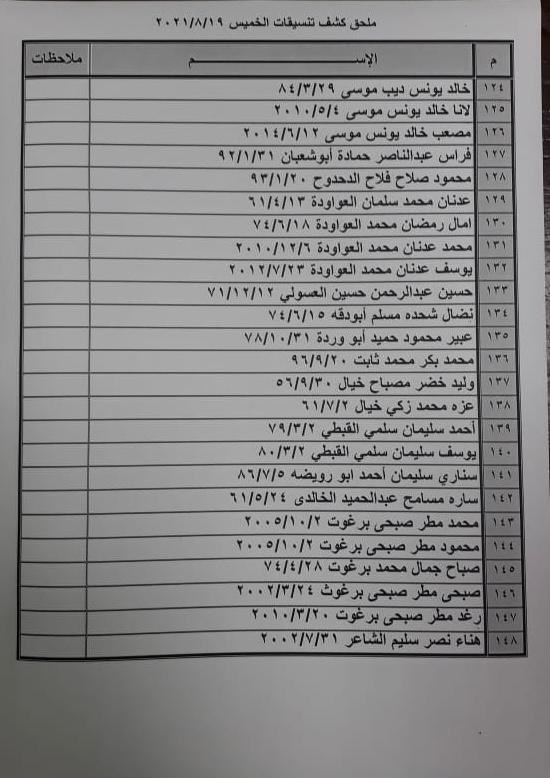 ملحق كشف تنسيقات الخميس ٢٠٢١/٨/١٩
م الإســـــــــــم ملاحظات
١٢٤ خالد يونس ديب موسى ٨٤/٣/٢٩
١٢٥ لانا خالد يونس موسى ٢٠١٠/٥/٤
١٢٦ مصعب خالد يونس موسى ٢٠١٤/٦/١٢
١٢٧ فراس عبدالناصر حمادة أبوشعبان ٩٢/١/٣١
١٢٨ محمود صلاح فلاح الدحدوح ٩٣/١/٢٠
١٢٩ عدنان محمد سلمان العواودة ٦١/٤/١٣
١٣٠ امال رمضان محمد العواودة ٧٤/٦/١٨
١٣١ محمد عدنان محمد العواودة ٢٠١٠/١٢/٦
١٣٢ يوسف عدنان محمد العواودة ٢٠١٢/٧/٢٣
١٣٣ حسين عبدالرحمن حسين العسولي ٧١/١٢/١٢
١٣٤ نضال شحده مسلم أبودقه ٧٤/٦/١٥
١٣٥ عبير محمود حميد أبو وردة ٧٨/١٠/٣١
١٣٦ محمد بكر محمد ثابت ٩٦/٩/٢٠
١٣٧ وليد خضر مصباح خيال ٥٦/٩/٣٠
١٣٨ عزه محمد زكي خيال ٦١/٧/٢
١٣٩ أحمد سليمان سلمي القبطي ٧٩/٣/٢
١٤٠ يوسف سليمان سلمي القبطي ٨٠/٣/٢
١٤١ سناري سليمان أحمد ابو رويضه ٨٦/٧/٥
١٤٢ ساره مسامح عبدالحميد الخالدى ٦١/٥/٢٤
١٤٣ محمد مطر صبحى برغوت ٢٠٠٥/١٠/٢
١٤٤ محمود مطر صبحى برغوت ٢٠٠٥/١٠/٢
١٤٥ صباح جمال محمد برغوت ٧٤/٤/٢٨
١٤٦ صبحى مطر صبحى برغوث ٢٠٠٢/٣/٢٤
١٤٧ رغد مطر صبحى برغوت ٢٠١٠/٣/٢٠
١٤٨ هناء نصر سليم الشاعر ٢٠٠٢/٧/٣١